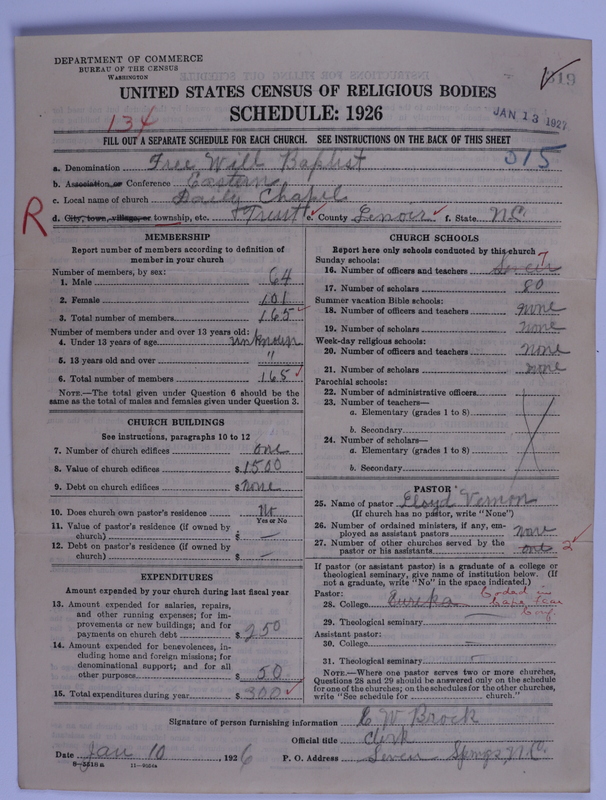 DEPARTMENT OF COMMERCE
BUREAU OF THE CENSUS
WASHINGTON
UNITED STATES CENSUS OF RELIGIOUS BODIES
SCHEDULE: 1926
JAN 13 1927
134
FILL OUT A SEPARATE SCHEDULE FOR EACH CHURCH. SEE INSTRUCTIONS ON THE BACK OF THIS SHEET
a. Denomination Free Will Baptist
b. Association, or Conference Eastern
c. Local name of church Daily Chapel
R
d. City, town, village, or township, etc. Trent e. County Lenoir f. State N.C.
MEMBERSHIP
Report number of members according to definition of
member in your church
Number of members, by sex:
1. Male 64
2. Female 101
3. Total number of members 165
Number of members under and over 13 years old:
4. Under 13 years of age unknown
5. 13 years old and over "
6. Total number of members 165
NOTE.—The total given under Question 6 should be the
same as the total of males and females given under Question 3.
CHURCH BUILDINGS
See instructions, paragraphs 10 to 12
7. Number of church edifices one
8. Value of church edifices $1500
9. Debt on church edifices $None
10. Does church own pastor's residence No
Yes or No
11. Value of pastor's residence (if owned by
church) $ —
12. Debt on pastor's residence (if owned by
church) $ —
EXPENDITURES
Amount expended by your church during last fiscal year
13. Amount expended for salaries, repairs,
and other running expenses; for im-
provements or new buildings; and for
payments on church debt $250
14. Amount expended for benevolences, in-
cluding home and foreign missions; for
denominational support; and for all
other purposes $50
15. Total expenditures during year $300
CHURCH SCHOOLS
Report here only schools conducted by this church
Sunday schools:
16. Number of officers and teachers Seven 7
17. Number of scholars 80
Summer vacation Bible schools:
18. Number of officers and teachers none
19. Number of scholars none
Week-day religious schools:
20. Number of officers and teachers none
21. Number of scholars none
Parochial schools:
22. Number of administrative officers
23. Number of teachers—
a. Elementary (grades 1 to 8)
b. Secondary
24. Number of scholars—
a. Elementary (grades 1 to 8)
b. Secondary
PASTOR
25. Name of pastor Lloyd Vernon
(If church has no pastor, write "None")
26. Number of ordained ministers, if any, em-
ployed as assistant pastors none
27. Number of other churches served by the
pastor or his assistants one 2
If pastor (or assistant pastor) is a graduate of a college or
theological seminary, give name of institution below. (If
not a graduate, write "No" in the space indicated.)
Pastor:
28. College Eureka
in Cape Fear Conf.
29. Theological seminary —
Assistant pastor:
30. College —
31. Theological seminary —
NOTE.—Where one pastor serves two or more churches,
Questions 28 and 29 should be answered only on the schedule
for one of the churches; on the schedules for the other churches,
write "See schedule for church."
Signature of person furnishing information C W Brock
Official title Clerk
Date Jan 10, 1926 P. O. Address Seven Springs, N.C.
8—5518a 11—9284